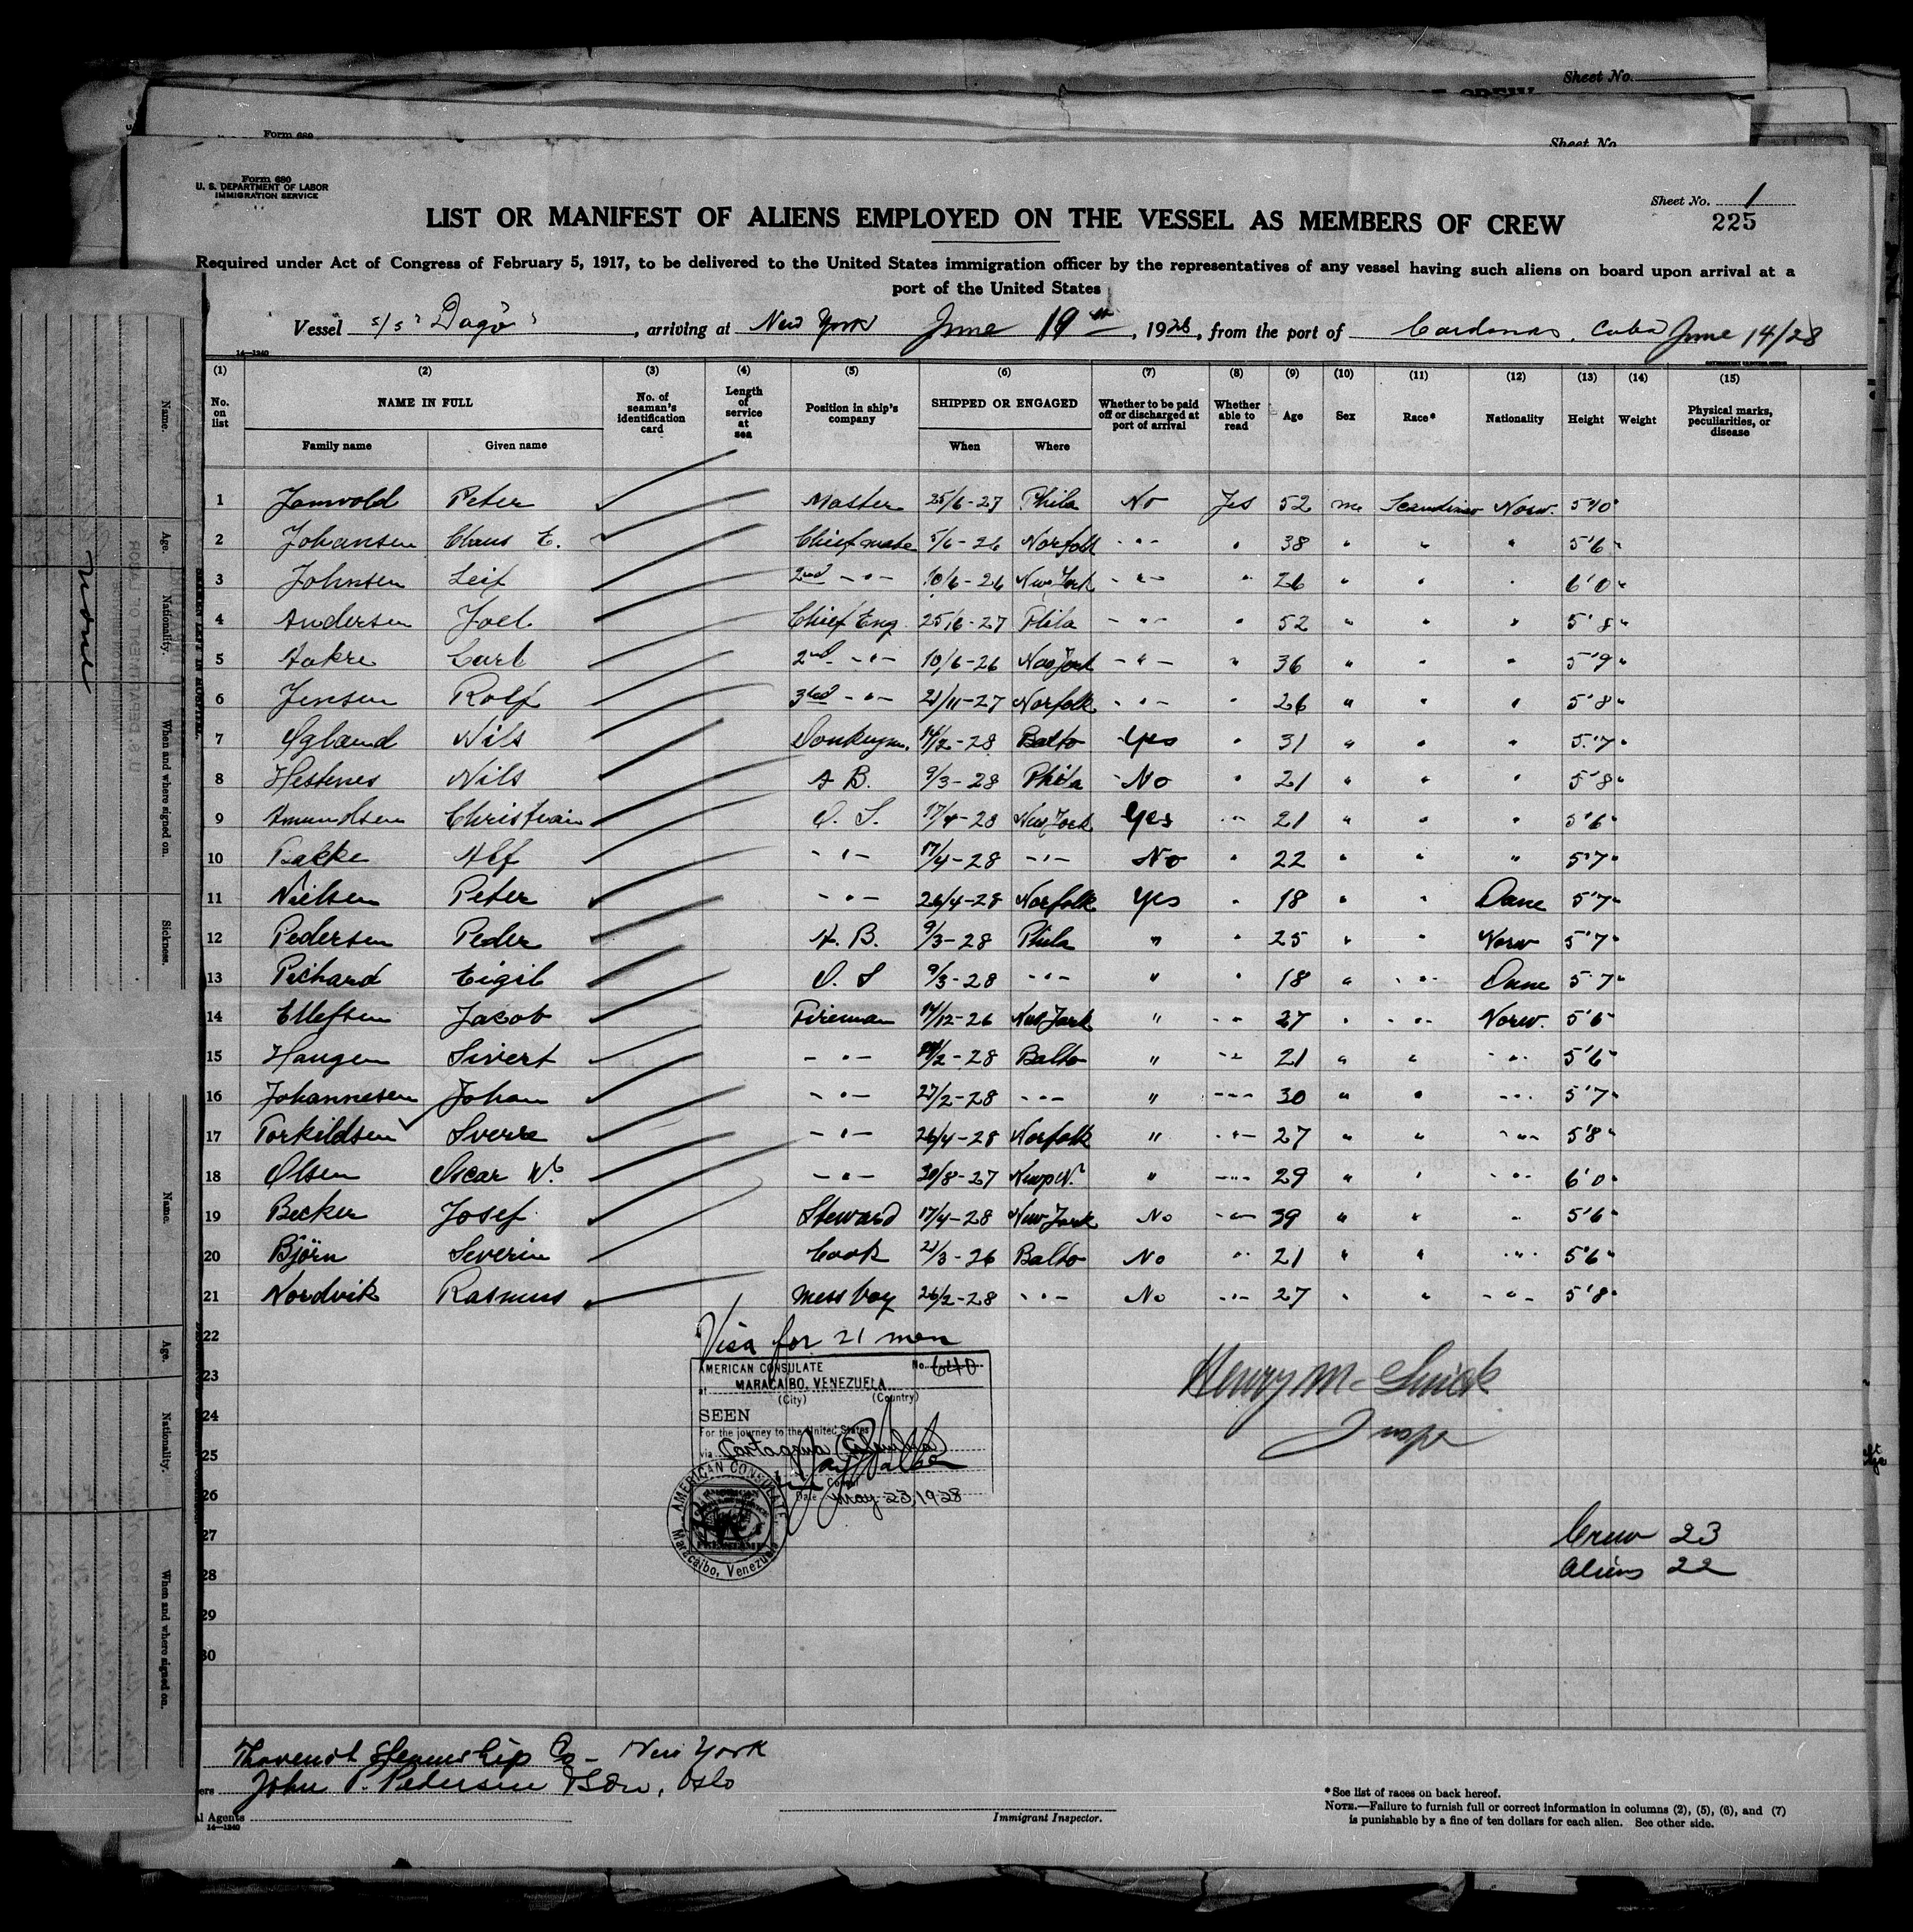 Sheet No.
Form 680
Sheet No.
Form 680
U. S. DEPARTMENT OF LABOR
IMMIGRATION SERVICE
Sheet No. 1
225
LIST OR MANIFEST OF ALIENS EMPLOYED ON THE VESSEL AS MEMBERS OF CREW
Required under Act of Congress of February 5, 1917, to be delivered to the United States immigration officer by the representatives of any vessel having such aliens on board upon arrival at a
port of the United States
Vessel s/s "Dagö", arriving at New York June 19th, 1928, from the port of Cardenas, Cuba June 14/28
14—1240
(1) (2) (3) (4) (5) (6) (7) (8) (9) (10) (11) (12) (13) (14) (15)
No. on list NAME IN FULL No. of seaman's identification card Length of service at sea Position in ship's company SHIPPED OR ENGAGED Whether to be paid off or discharged at port of arrival Whether able to read Age Sex Race* Nationality Height Weight Physical marks, peculiarities, or disease
Family name Given name When Where
1 Peter Master 25/6-27 Phila No Yes 52 m Norw. 5'10"
2 Johansen Claus E. Chief mate 5/6-26 Norfolk -"- " 38 " " " 5'6"
3 Johnsen Leif 2nd -"- 10/6-26 New York -"- " 26 " " " 6'0"
4 Andersen Joel Chief Eng. 25/6-27 Phila -"- " 52 " " " 5'8"
5 Aakre Carl 2nd -"- 10/6-26 New York -"- " 36 " " " 5'9"
6 Jensen Rolf 3rd -"- 21/11-27 Norfolk -"- " 26 " " " 5'8"
7 Øgland Nils Donkeym. 14/2-28 Balto Yes " 31 " " " 5'7"
8 Hestnes Nils A B. 9/3-28 Phila No " 21 " " " 5'8"
9 Amundsen Christian O. S. 17/4-28 New York Yes " 21 " " " 5'6"
10 Bakke Alf -"- 17/4-28 -"- No " 22 " " " 5'7"
11 Nielsen Peter -"- 26/4-28 Norfolk Yes " 18 " " Dane 5'7"
12 Pedersen Peder A. B. 9/3-28 Phila " " 25 " " Norw 5'7"
13 Pichard Eigil O. S 9/3-28 -"- " " 18 " -"- Dane 5'7"
14 Ellefsen Jacob Fireman 14/12-26 New York " -"- 27 " -"- Norw. 5'6"
15 Haugen Sivert -"- 2-28 Balto " -"- 21 " " -"- 5'6"
16 Johannesen Johan -"- 27/2-28 -"- " -"- 30 " " -"- 5'7"
17 Torkildsen Sverre -"- 26/4-28 Norfolk " -"- 27 " " -"- 5'8"
18 Olsen Oscar W. -"- 30/8-27 " -"- 29 " " -"- 6'0"
19 Becker Josef Steward 17/4-28 New York No -"- 39 " " " 5'6"
20 Björn Severin Cook 21/3-26 Balto No " 21 " " -"- 5'6"
21 Nordvik Rasmus Mess boy 26/2-28 -"- No -"- 27 " " -"- 5'8"
22
23
24
25
26
27
28
29
30
Visa for 21 men
AMERICAN CONSULATE No. 640
at MARACAIBO, VENEZUELA
(City) (Country)
SEEN
For the journey to the United States
via Cartagena Colombia
Consul
Date May 23, 1928
AMERICAN CONSULATE,
Maracaibo, Venezuela
Henry
Insp
Crew 23
Aliens 22
Steamship Co - New York
ers John P. Pedersen & Son, Oslo
al Agents
14—1240
Immigrant Inspector.
*See list of races on back hereof.
NOTE.—Failure to furnish full or correct information in columns (2), (5), (6), and (7)
is punishable by a fine of ten dollars for each alien. See other side.
Name.
Age.
Nationality.
When and where signed on.
Sickness.
None
U. S. DEPARTMENT OF LABOR
Name.
Age.
Nationality.
When and where signed on.